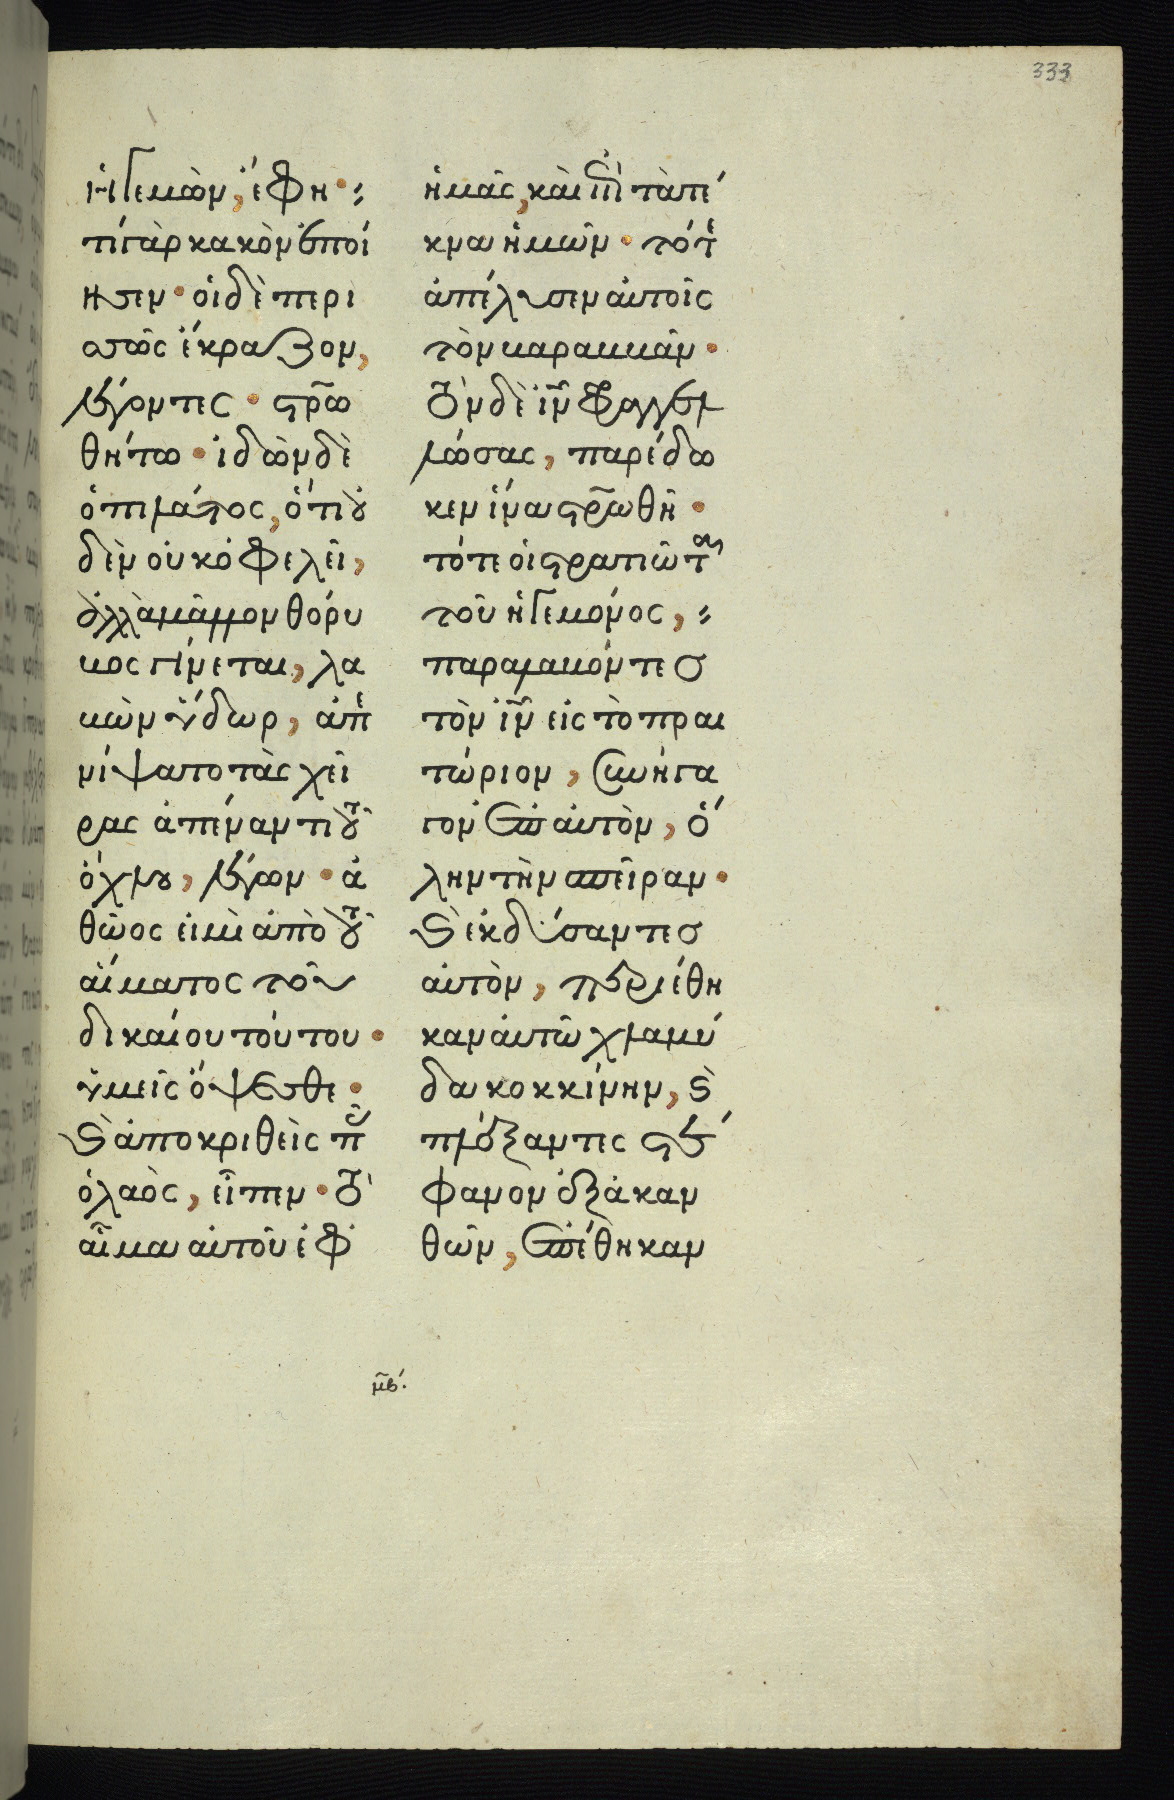 333
ἡγεμὼν, ἔφη·
τί γὰρ κακὸν ἐποί
ησεν· οἱ δὲ περι
σσῶς ἔκραζον,
λέγοντες· στρω
θήτω· ἰδὼν δὲ
ὁ πιλάτος, ὅτι οὐ
δὲν οὐκ ὀφελεῖ,
ἀλλὰ μᾶλλον θόρυ
βος γίνεται, λα
βὼν ὕδωρ, ἀπε
νίψατο τὰς χεῖ
ρας ἀπέναντι τοῦ
ὄχλου, λέγων· ἀ
θῶος εἰμὶ ἀπὸ τοῦ
αἵματος τοῦ
δικαίου τούτου·
ὑμεῖς ὄψεσθε·
καὶ ἀποκριθεὶς πᾶς
ὁ λαὸς, εἶπεν· τὸ
αἷμα αὐτοῦ ἐφ
ἡμᾶς, καὶ ἐπὶ τὰ τέ
κνα ἡμῶν· τότε
ἀπέλυσεν αὐτοῖς
τὸν βαραββᾶν·
τὸν δὲ ἰν φραγγελ
λώσας, παρέδω
κεν ἵνα στρωθῇ·
τότε οἱ στρατιῶται
τοῦ ἡγεμόνος,
παραλαβόντες
τὸν ἰν εἰς τὸ πραι
τώριον, συνήγα
γον ἐπ αὐτὸν, ὅ
λην τὴν σπεῖραν·
καὶ ἐκδύσαντες
αὐτὸν, περιέθη
καν αὐτῶ χλαμύ
δα κοκκίνην, καὶ
πλέξαντες στέ
φανον ἐξ ἀκαν
θῶν, ἐπέθηκαν
μβ΄.